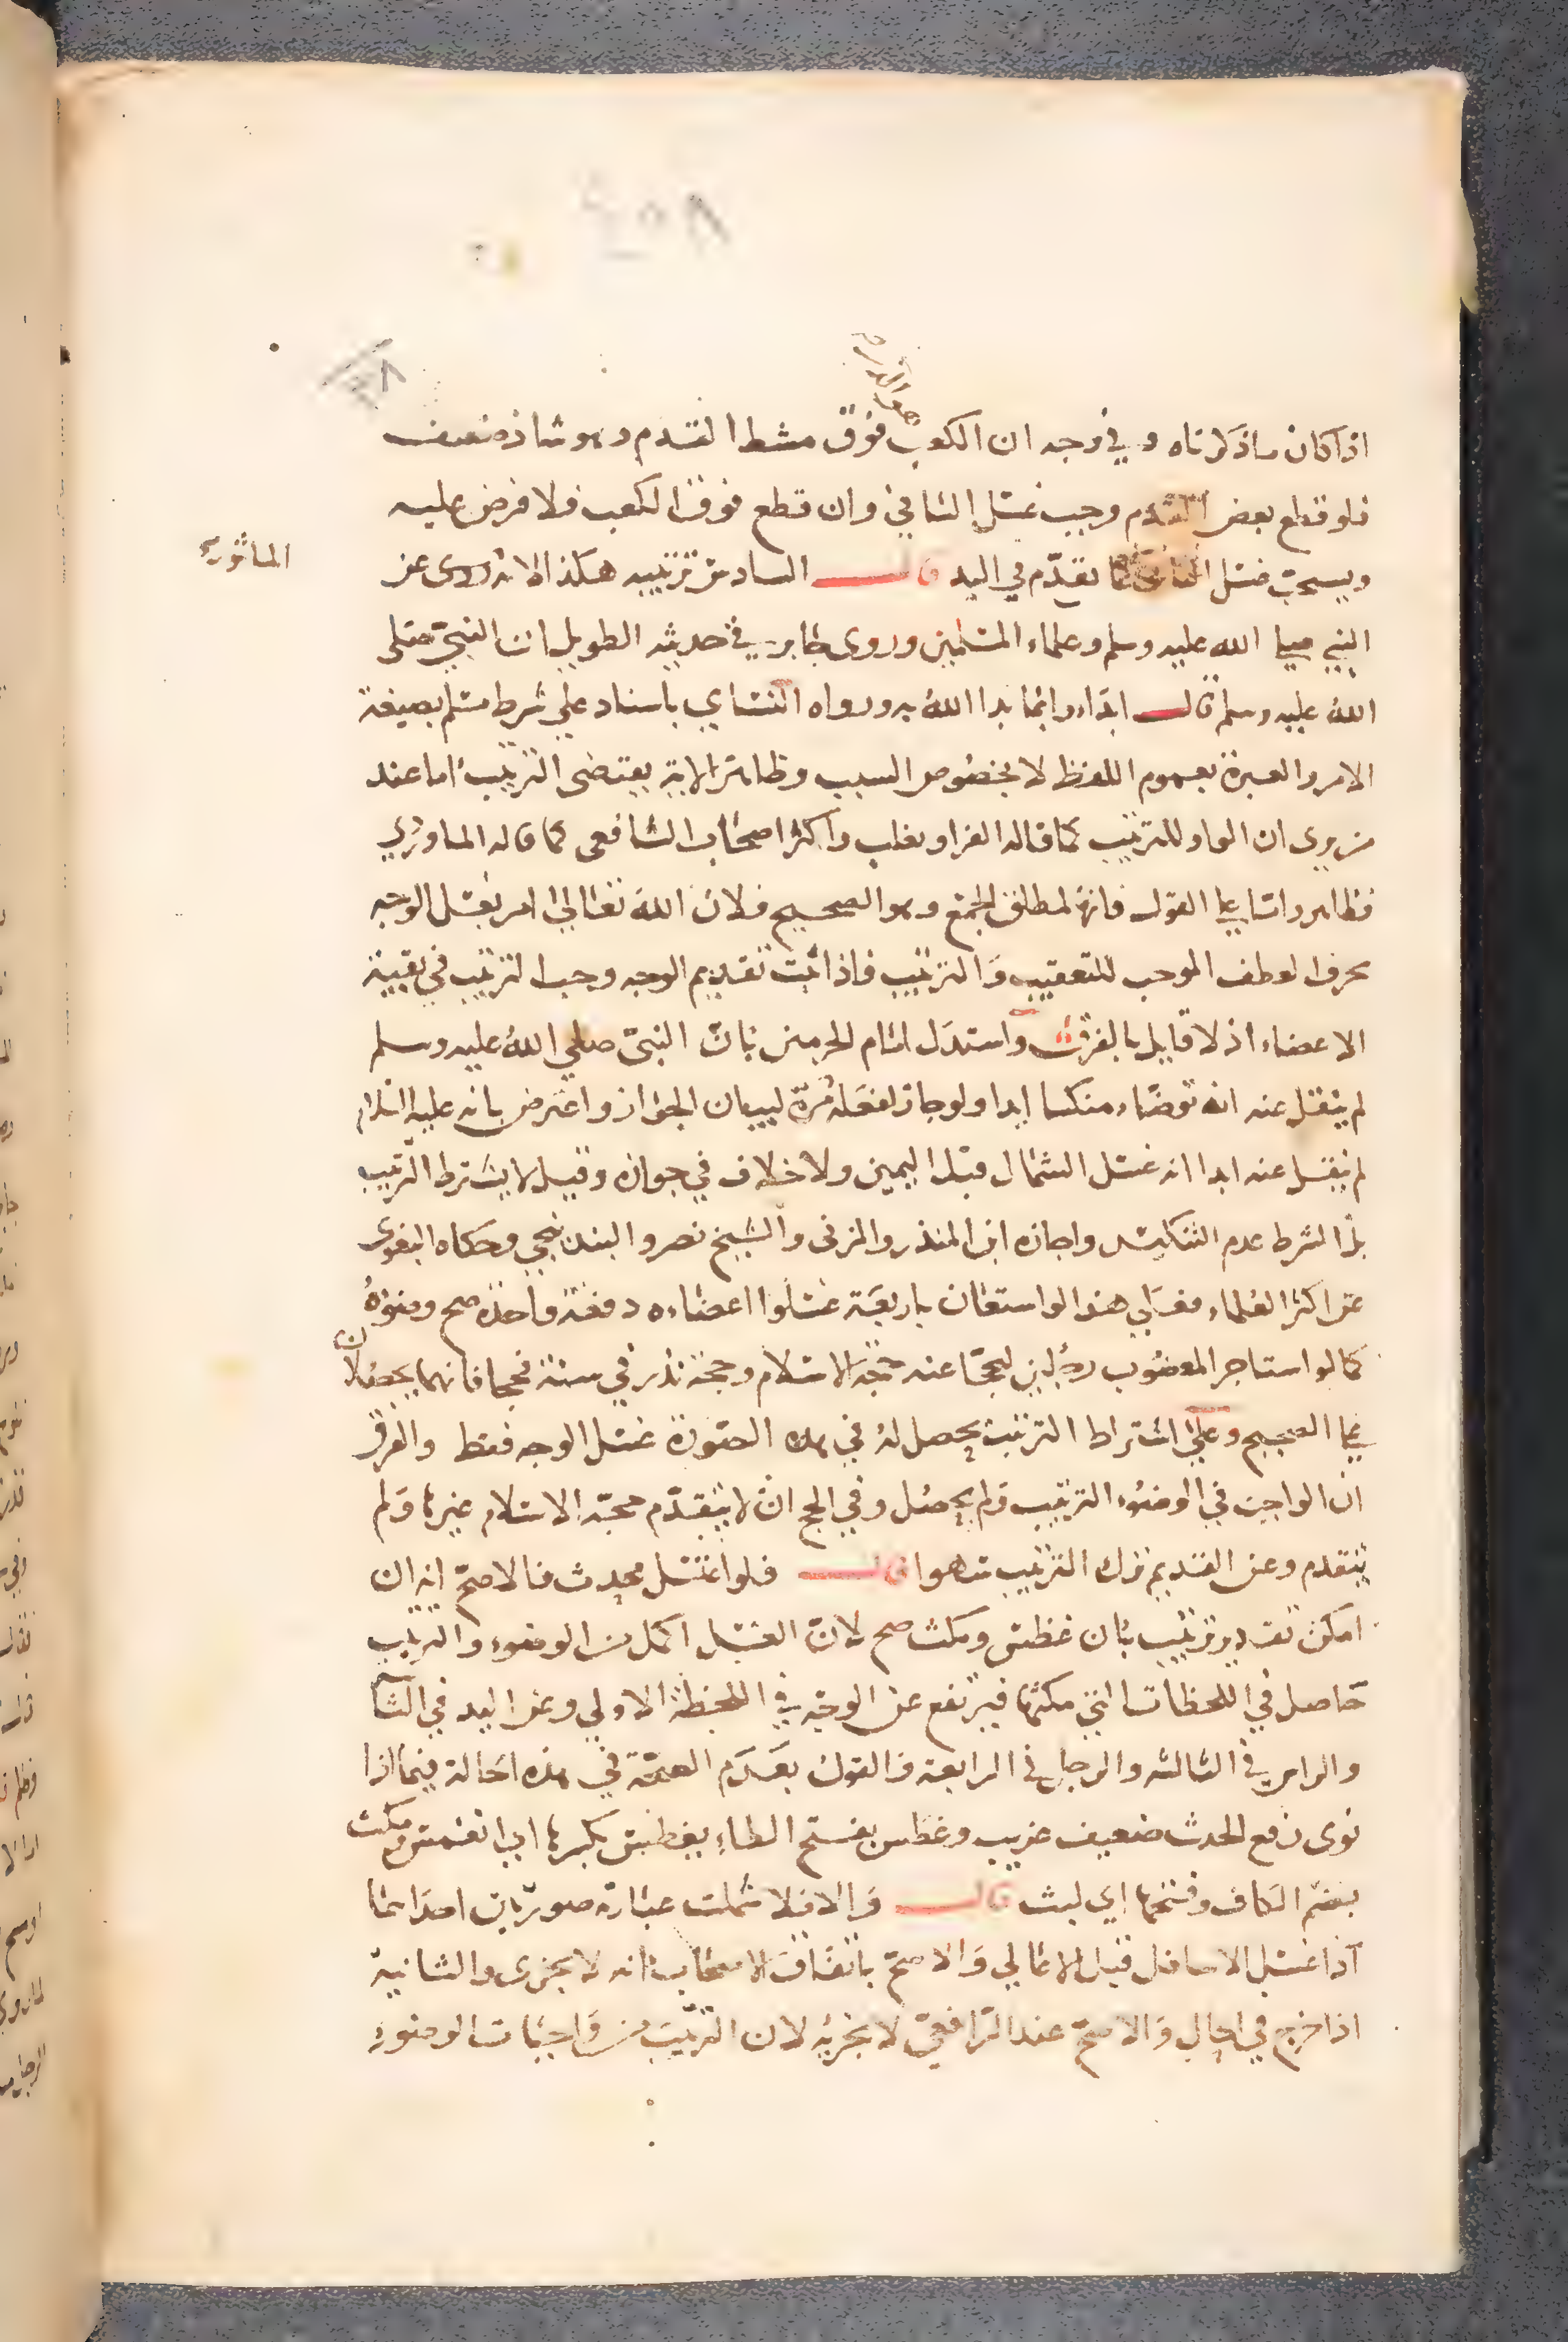 اذا كان ما ذكرناه وفي وجه ان الكعب فوق مشط القدم وهو شاذ ضعيف
فلو قطع بعض القدم وجب غسل الباقي وان قطع فوق الكعب فلا فرض عليه
ويستحب غسل الباقي كما تقدم في اليد قال السادس ترتيبه هكذا لانه روى عن
الماثور
النبي صلى الله عليه وسلم وعلماء المسلمين وروى جابر في حديثه الطويل ان النبي صلى
الله عليه وسلم قال ابداوا بما بدا الله به ورواه النساي باسناد على شرط مسلم بصيغة
الامر والعبرة بعموم اللفظ لا بخصوص السبب وظاهر الاية يقتضى الترتيب اما عند
من يرى ان الواو للترتيب كما قاله الفرا وثعلب واكثر اصحاب الشافعى كما قاله الماوردي
فظاهر واما على القول فانها لمطلق الجمع وهو الصحيح فلان الله تعالى امر بغسل الوجه
بحرف العطف الموجب للتعقيب والترتيب فاذا ثبت تقديم الوجه وجب الترتيب في بقية
الاعضاء اذ لا قايل بالفرق واستدل امام الحرمين بان النبي صلى الله عليه وسلم
لم ينقل عنه انه توضاء منكسا ابدا ولو جاز لفعله مرة لبيان الجواز واعترض بانه عليه السلام
لم ينقل عنه ابدا انه غسل الشمال قبل اليمين ولا خلاف في جوازه وقيل لا يشترط الترتيب
بل الشرط عدم التنكيس واجازه ابن المنذر والمزنى والشيخ نصر والبندنيجي وحكاه البغوى
عن اكثر العلماء فعلى هذا لو استعان باربعة غسلوا اعضاءه دفعة واحدة صح وضوءه
كما لو استاجر المعضوب رجلين ليحجا عنه حجة الاسلام وحجة نذر في سنة فحجا فانهما يحصلان
على الصحيح وعلى اشتراط الترتيب يحصل له في هذه الصورة غسل الوجه فقط والفرق
ان الواجب في الوضوء الترتيب ولم يحصل وفي الحج ان لا يتقدم حجة الاسلام غيرها ولم
يتقدم وعن القديم ترك الترتيب سهوا قال فلو اغتسل محدث فالاصح انه ان
امكن تقدير ترتيب بان غطس ومكث صح لان الغسل اكمل من الوضوء والترتيب
حاصل في اللحظات التي مكثها فيرتفع عن الوجه في اللحظة الاولى وعن اليد في الثا
والراس في الثالثه والرجل في الرابعة والقول بعدم الصحة في هذه الحالة فيما اذا
نوى رفع الحدث ضعيف غريب وغطس بفتح الطاء يغطس بكسرها اي انغمس ومكث
بضم الكاف وفتحها اي لبث قال والا فلا شملت عبارته صورتين احداهما
اذا غسل الاسافل قبل الاعالي والاصح باتفاق الاصحاب انه لا يجزى والثانية
اذا خرج في الحال والاصح عند الرافعي لا يجزيه لان الترتيب من واجبات الوضوء